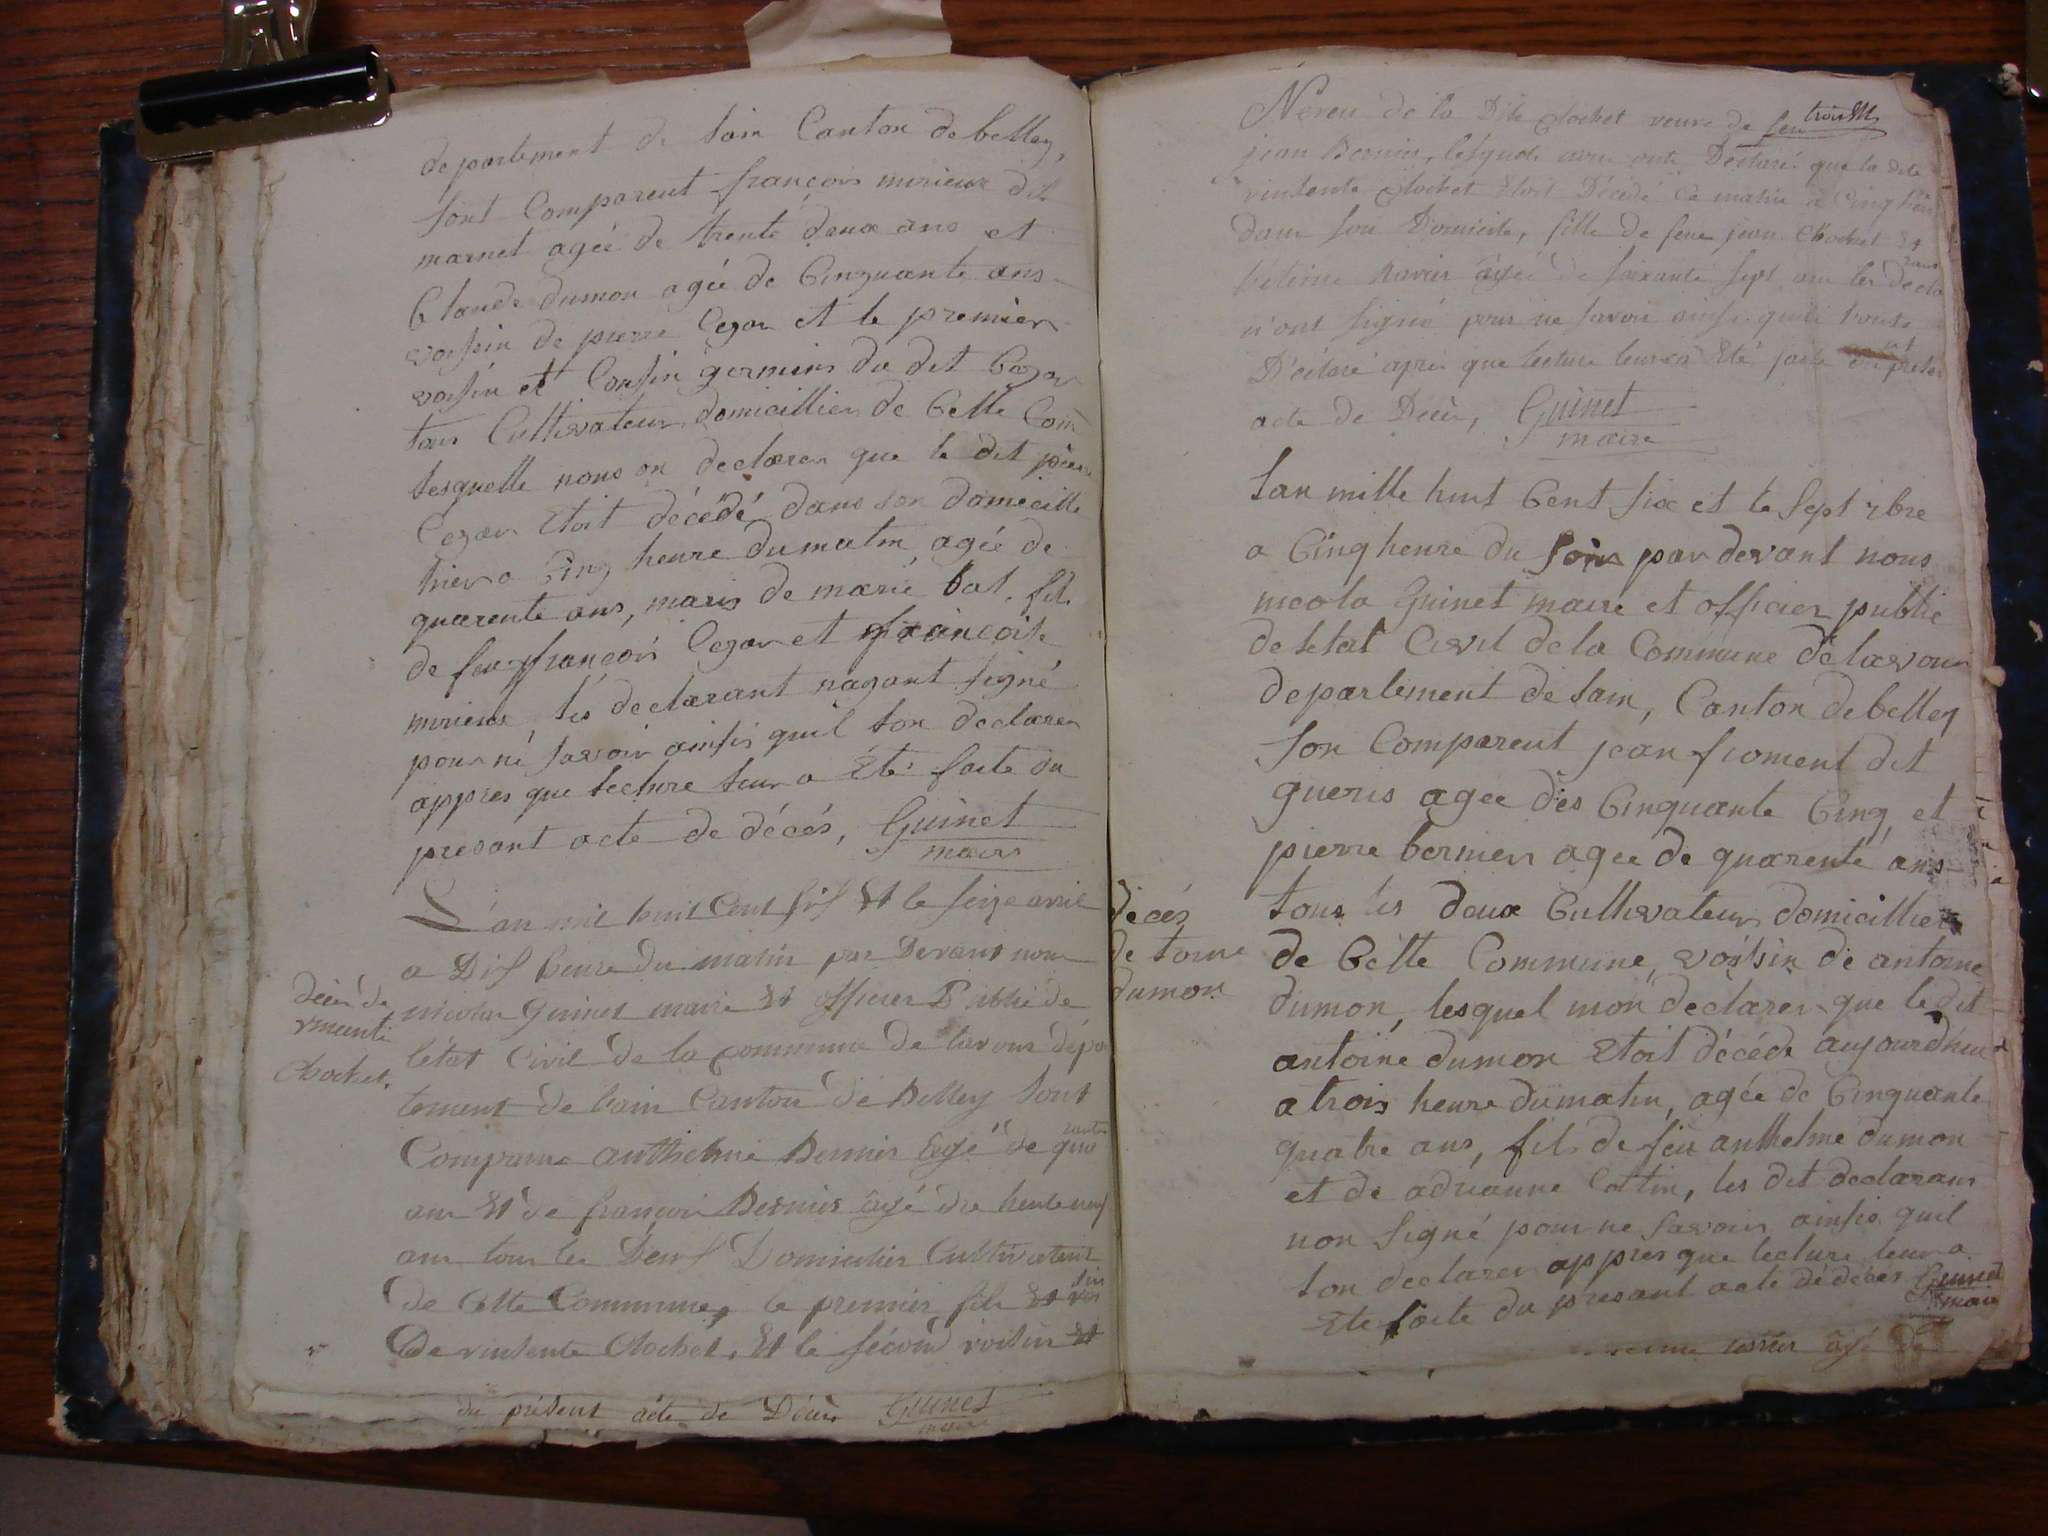 departement de lain Canton de belley,
sont Comparent françois mirieux dit
marnet agée de trente deux ans et
Claude dumon agée de Cinquante ans
voisin de pierre Cezar et le premier
voisin et Cousin germins du dit Cezar
tous Cultivateur domicillier de Cette Com
lesquelle nous on declarer que le dit pierre
Cezar Etoit décédé dans son domicille
hier a Cinq heure du matin agée de
quarente ans, maris de marie bal. fils
de feu françois Cezar et françoise
mirieux, les declarant nayant signé
pour ne savoir ainsis quil lon declarer
appres que lecture leur a Eté faite du
presant acte de décés, Guinet
maire
L'an mil huit Cent six Et le seize avril
a Dix heure du matin par Devant nous
nicolas Guinet maire Et officier Public de
létat Civil de la commune de lavour dépa
tement de lain Canton de Belley sont
Comparus anthelme Bernier âgé de qua
rante
ans Et de françois Bernier âgé de trente neuf
ans tous les Deux Domicilier Cultivateur
de Cette Commune, le premier fils Et voi
sin
De vinsente Clochet, Et le sécond voisin Et
décés de
vincente
Clochet.
du présent acte de Décés Guinet
maire
Neveu de la Dite Clochet veuve de feu trois M
jean Bernier, lesquels nous onts Déclaré que la dite
vinsente Clochet Etoit Décédé Ce matin a Cinq heure
dans son Domicile, fille de feue jean Clochet Et
ravier âgée de soixante sept ans les decla
rans
n'ont signé pour ne savoir ainsi quils l'onts
Déclaré après que lecture leur en Eté faite du présen
acte de Décès, Guinet
maire
Lan mille huit Cent six et le sept 7bre
a Cinq heure du soir par devant nous
nicola Guinet maire et officier public
de létat Civil de la Commune de lavour
departement de lain, Canton de belley
son Comparent jean froment dit
gueris agée des Cinquante Cinq et
pierre bernier agee de quarente ans
tous les deux Cultivateur domicillier
de Cette Commune, voisin de antoine
dumon, lesquel mon declarer que le dit
antoine dumon Etoit décéde aujourdhui
a trois heure du matin, agée de Cinquante
quatre ans, fils de feu anthelme dumon
et de adrianne Cottin, les dit declarans
non signé pour ne savoir, ainsis quil
lon declarer appres que lecture leur a
Ete faite du presant acte de déces Guinet
maire
décés
de toine
dumon
âgé de